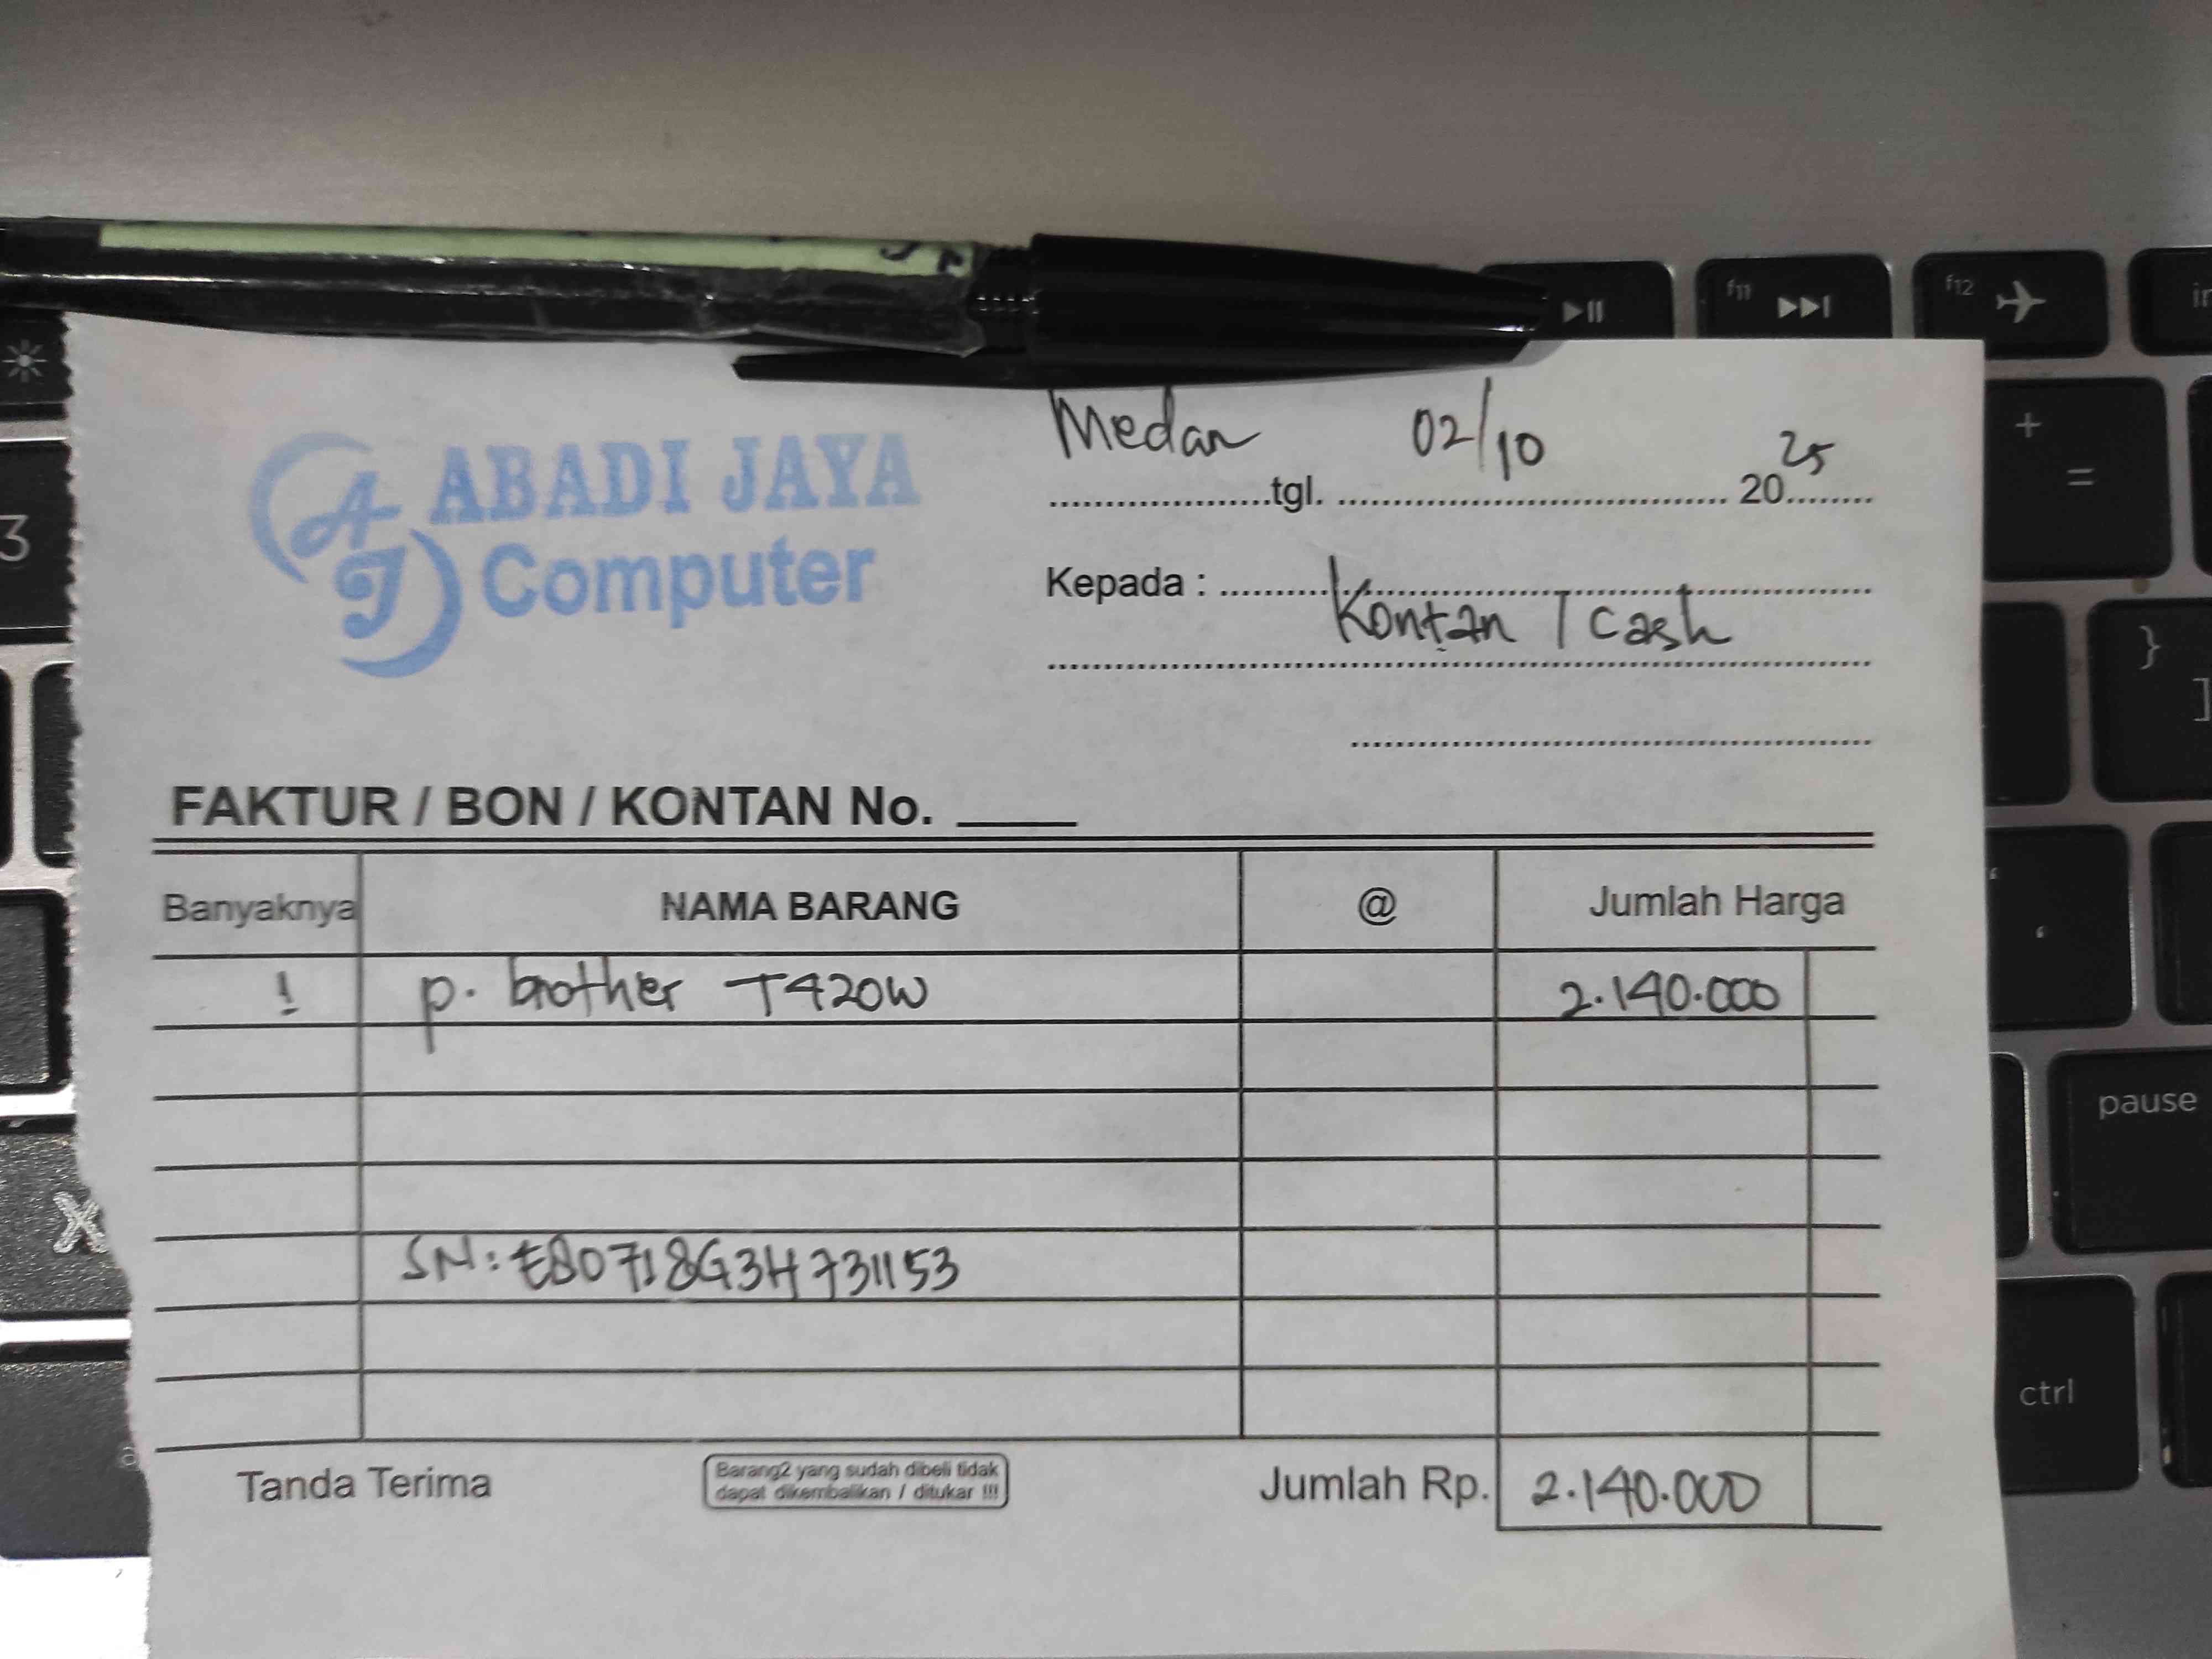 f11
f12
3
+
=
}
]
ABADI JAYA
Computer
AJ
Medan tgl. 02/10 2025
Kepada : Kontan / cash
FAKTUR / BON / KONTAN No.
Banyaknya NAMA BARANG @ Jumlah Harga
1 p. brother T420W 2.140.000
SN: E80718G3H731153
Tanda Terima
Barang2 yang sudah dibeli tidak
dapat dikembalikan / ditukar !!!
Jumlah Rp. 2.140.000
X
pause
ctrl